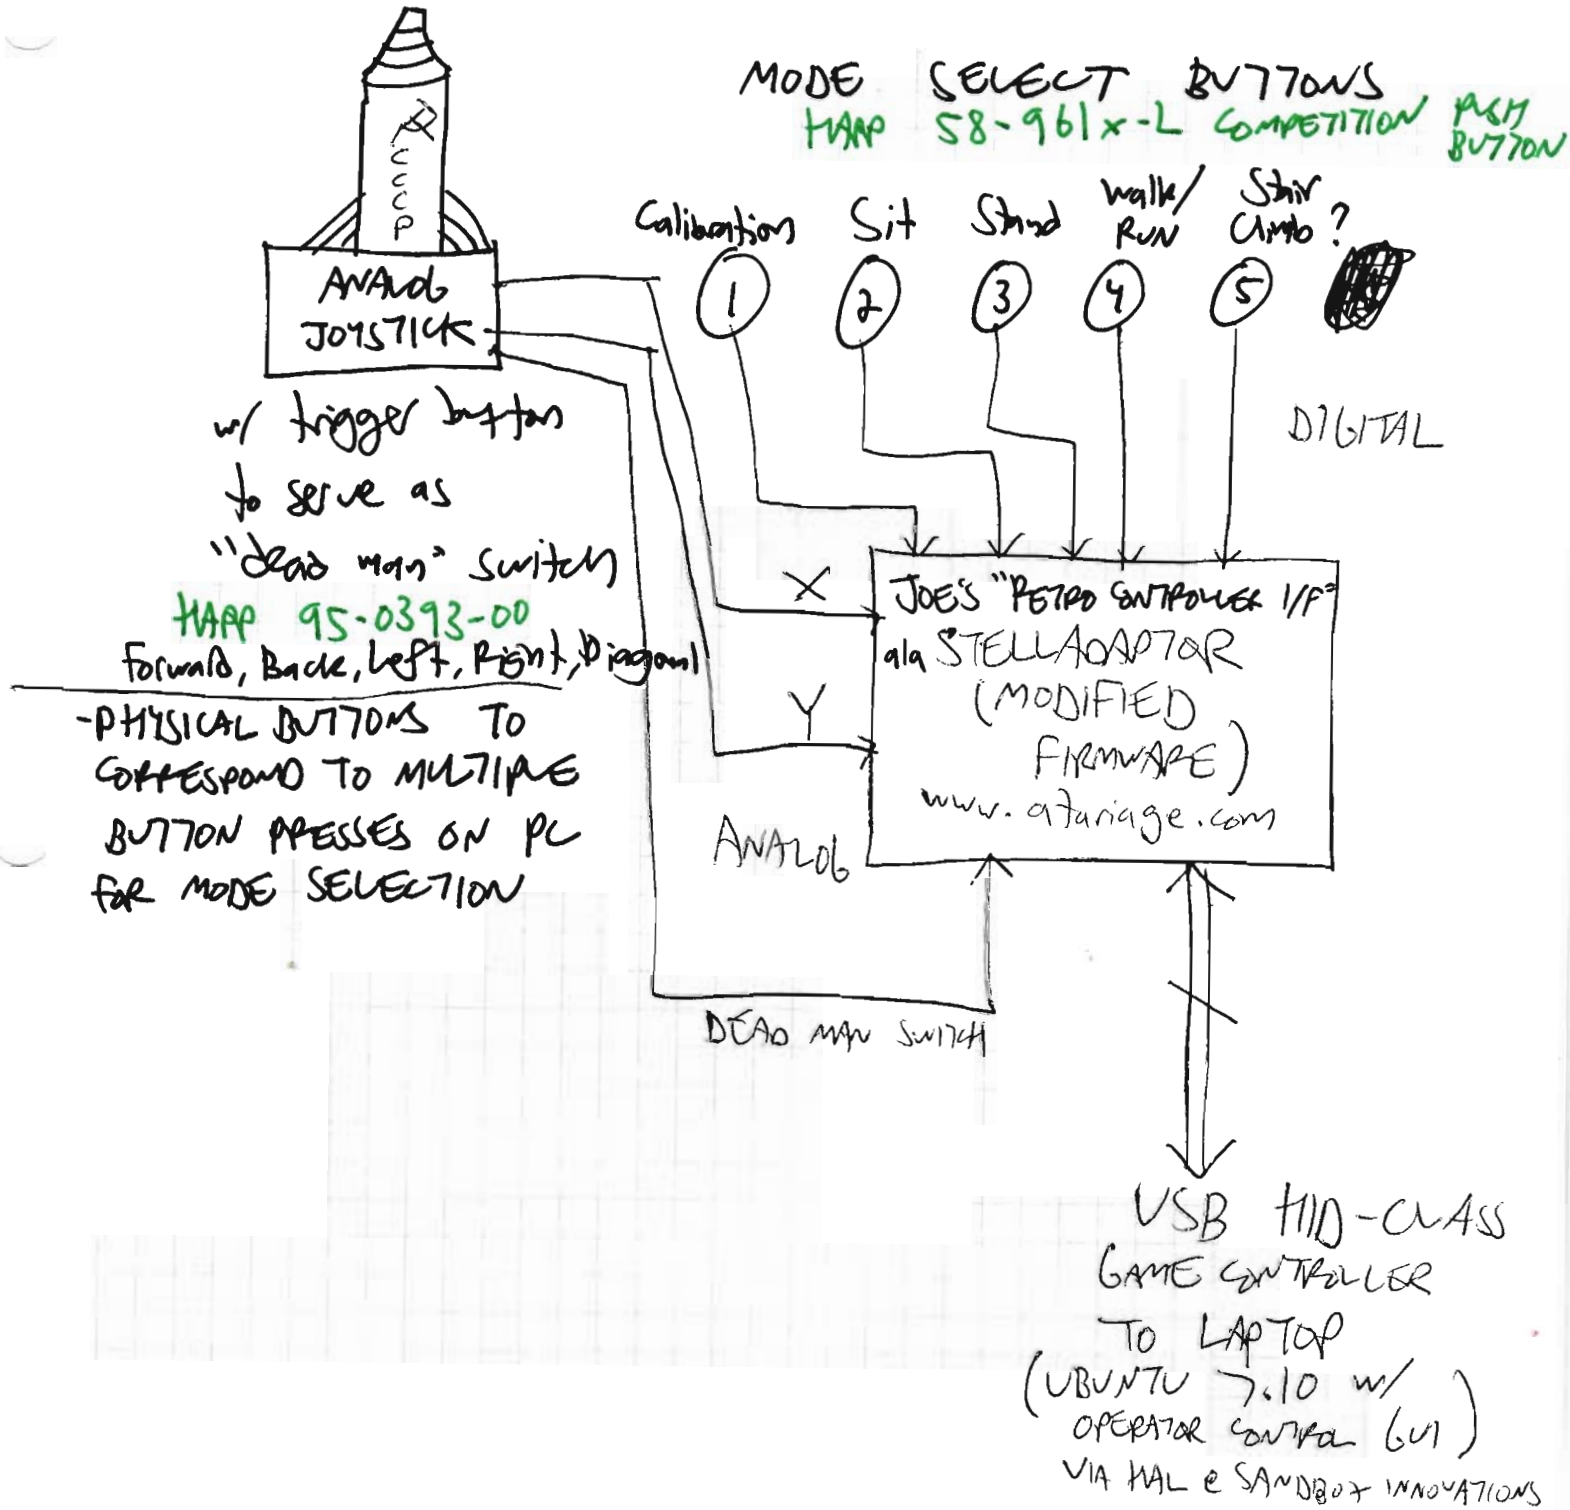 MODE SELECT BUTTONS
HAPP 58-961x-L COMPETITION PUSH
BUTTON
CCCP
Calibration
Sit
Stand
Walk/
RUN
Stair
Climb?
1
2
3
4
5
ANALOG
JOYSTICK
w/ trigger button
to serve as
"dead man" switch
HAPP 95-0393-00
Forward, Back, Left, Right, Diagonal
-PHYSICAL BUTTONS TO
CORRESPOND TO MULTIPLE
BUTTON PRESSES ON PC
FOR MODE SELECTION
DIGITAL
X
Y
ANALOG
JOE'S "RETRO CONTROLLER I/F"
ala STELLADAPTOR
(MODIFIED
FIRMWARE)
www.atariage.com
DEAD MAN SWITCH
USB HID-CLASS
GAME CONTROLLER
TO LAPTOP
(UBUNTU 7.10 w/
OPERATOR CONTROL GUI)
VIA HAL @ SANDBOX INNOVATIONS